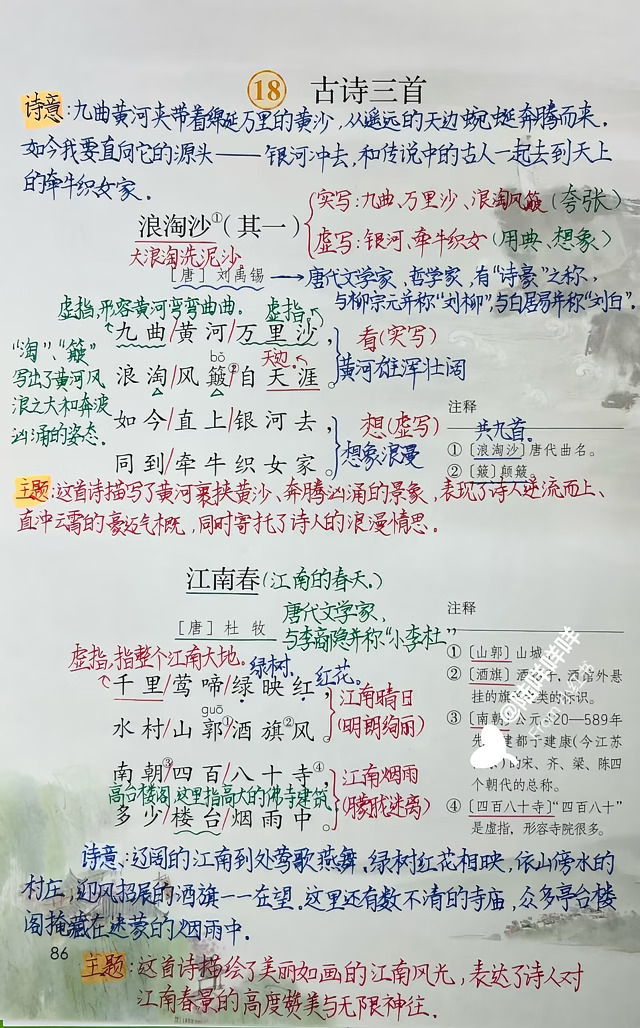 18 古诗三首
诗意:九曲黄河夹带着绵延万里的黄沙,从遥远的天边蜿蜒奔腾而来。
如今我要直向它的源头——银河冲去,和传说中的古人一起去到天上
的牵牛织女家。
实写:九曲、万里沙、浪淘风簸(夸张)
浪淘沙①(其一)
虚写:银河、牵牛织女(用典、想象)
大浪淘洗泥沙
[唐] 刘禹锡 →唐代文学家,哲学家,有“诗豪”之称,
与柳宗元并称“刘柳”,与白居易并称“刘白”。
虚指,形容黄河弯弯曲曲。 虚指。
九曲/黄河/万里沙,
看(实写)
“淘”、“簸”
写出了黄河风
浪之大和奔波
汹涌的姿态。
bǒ 天边。
浪淘/风簸②自天涯。
黄河雄浑壮阔
如今/直上/银河去,
想(虚写)
同到/牵牛织女家。
想象浪漫
注释
共九首。
①〔浪淘沙〕唐代曲名。
②〔簸〕颠簸。
主题:这首诗描写了黄河裹挟黄沙、奔腾汹涌的景象,表现了诗人逆流而上、
直冲云霄的豪迈气概,同时寄托了诗人的浪漫情思。
江南春(江南的春天。)
[唐] 杜牧
唐代文学家,
与李商隐并称“小李杜”
虚指,指整个江南大地。 绿树. 红花。
千里/莺啼/绿映红,
江南晴日
guō
水村/山郭①/酒旗②风。
(明朗绚丽)
南朝③/四百/八十寺④,
江南烟雨
高台楼阁,这里指高大的佛寺建筑
多少/楼台/烟雨中。
(朦胧迷离)
注释
①〔山郭〕山城
②〔酒旗〕
挂的
③〔南朝〕公元420—589年
建都于建康(今江苏
的宋、齐、梁、陈四
个朝代的总称。
④〔四百八十寺〕“四百八十”
是虚指,形容寺院很多。
诗意:辽阔的江南到处莺歌燕舞,绿树红花相映,依山傍水的
村庄,迎风招展的酒旗一一在望。这里还有数不清的寺庙,众多亭台楼
阁掩藏在迷蒙的烟雨中。
86
主题:这首诗描绘了美丽如画的江南风光,表达了诗人对
江南春景的高度赞美与无限神往。